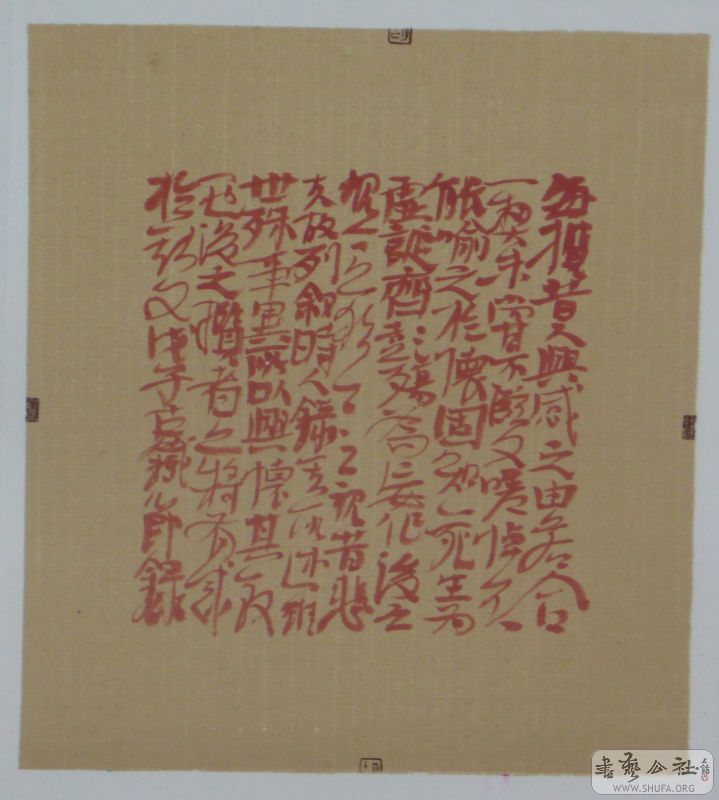 每攬昔人興感之由若合
一契未嘗不臨文嗟悼不
能喻之於懷固知一死生為
虛誕齊彭殤為妄作後之
視今亦今之視昔悲
夫故列敘時人錄其所述雖
世殊事異所以興懷其致
一也後之攬者亦將有感
於斯文戊子節錄
書藝公社
WWW.SHUFA.ORG